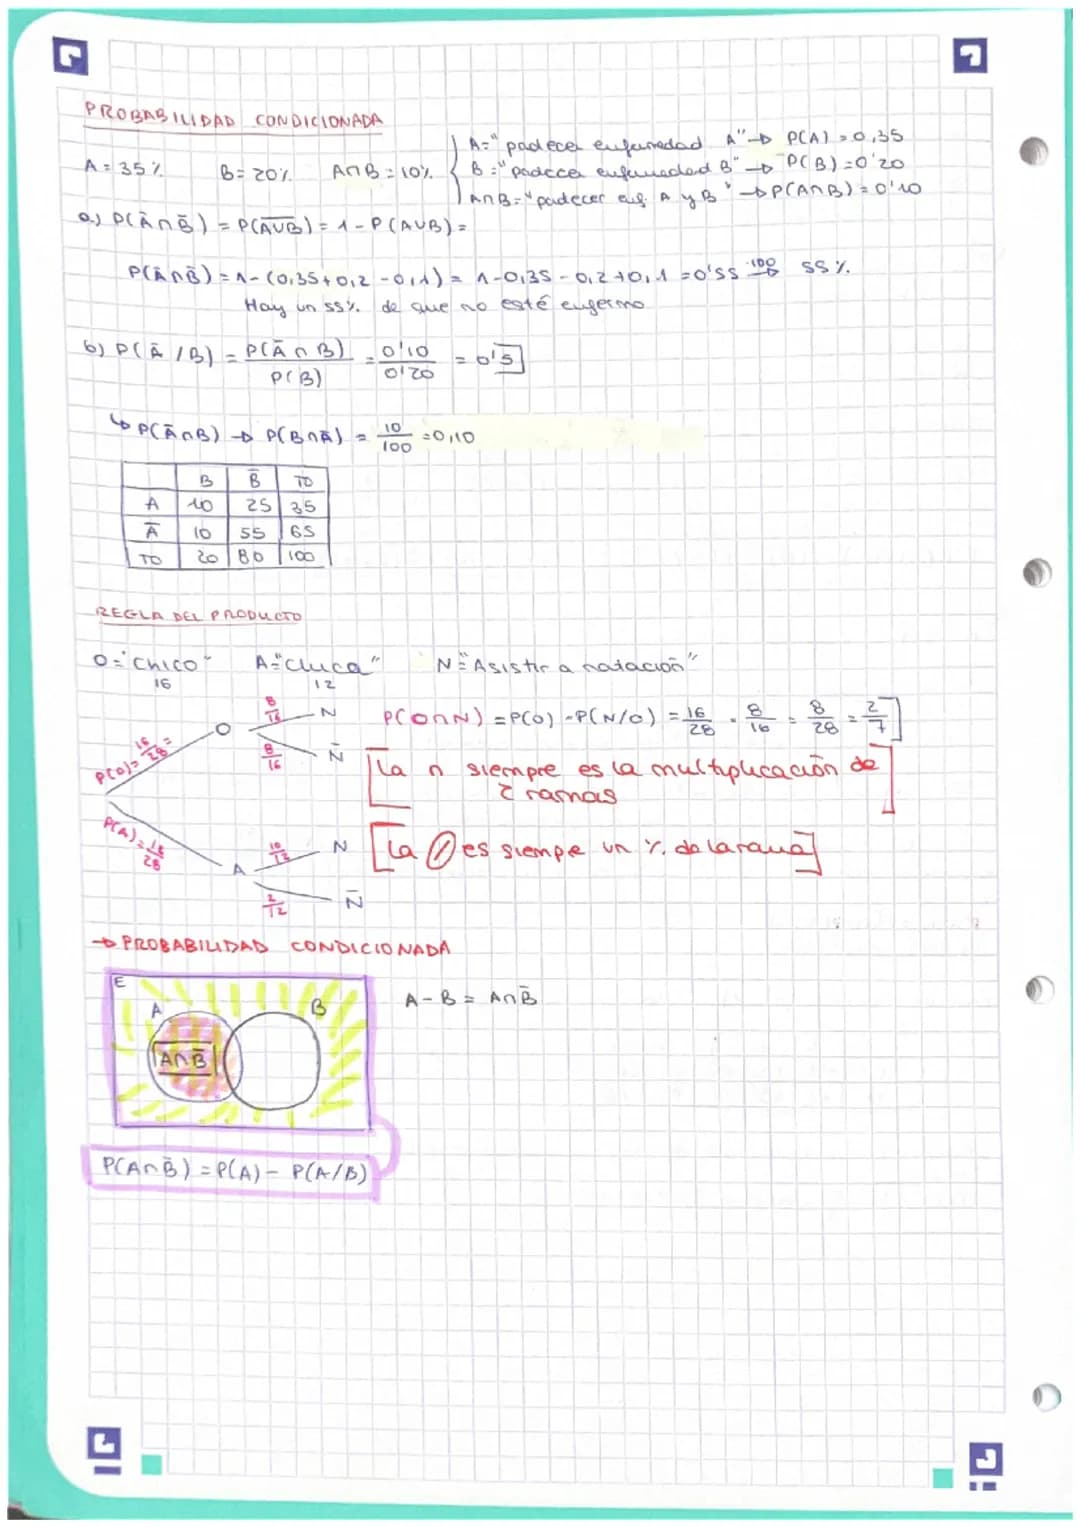 PROBABILIDAD CONDICIONADA
A = 35% B = 20% A∩B = 10%
A = "padecer enfermedad A" → P(A) = 0,35
B = "padecer enfermedad B" → P(B) = 0'20
A∩B = "padecer enf. A y B" → P(A∩B) = 0'10
a) P(Ā∩B̄) = P(A̅U̅B̅) = 1 - P(AUB) =
P(Ā∩B̄) = 1 - (0,35 + 0,2 - 0,1) = 1 - 0,35 - 0,2 + 0,1 = 0'55 ·100→ 55%
Hay un 55% de que no esté enfermo
b) P(Ā/B) = P(Ā∩B)/P(B) = 0'10/0'20 = 0'5
↳ P(Ā∩B) → P(B∩Ā) = 10/100 = 0,10
B B̄ TO
A 10 25 35
Ā 10 55 65
TO 20 80 100
REGLA DEL PRODUCTO
O = "Chico" A = "Chica" N = "Asistir a natación"
16 12
P(O) = 16/28 = O 8/16 N
8/16 N̄
P(O∩N) = P(O) · P(N/O) = 16/28 · 8/16 = 8/28 = 2/7
[La ∩ siempre es la multiplicación de
2 ramas]
P(A) = 12/28 A 10/12 N
2/12 N̄
[La / es siempre un % de la rama]
→ PROBABILIDAD CONDICIONADA
E
A B
A∩B̄
A - B = A∩B̄
P(A∩B̄) = P(A) - P(A/B)